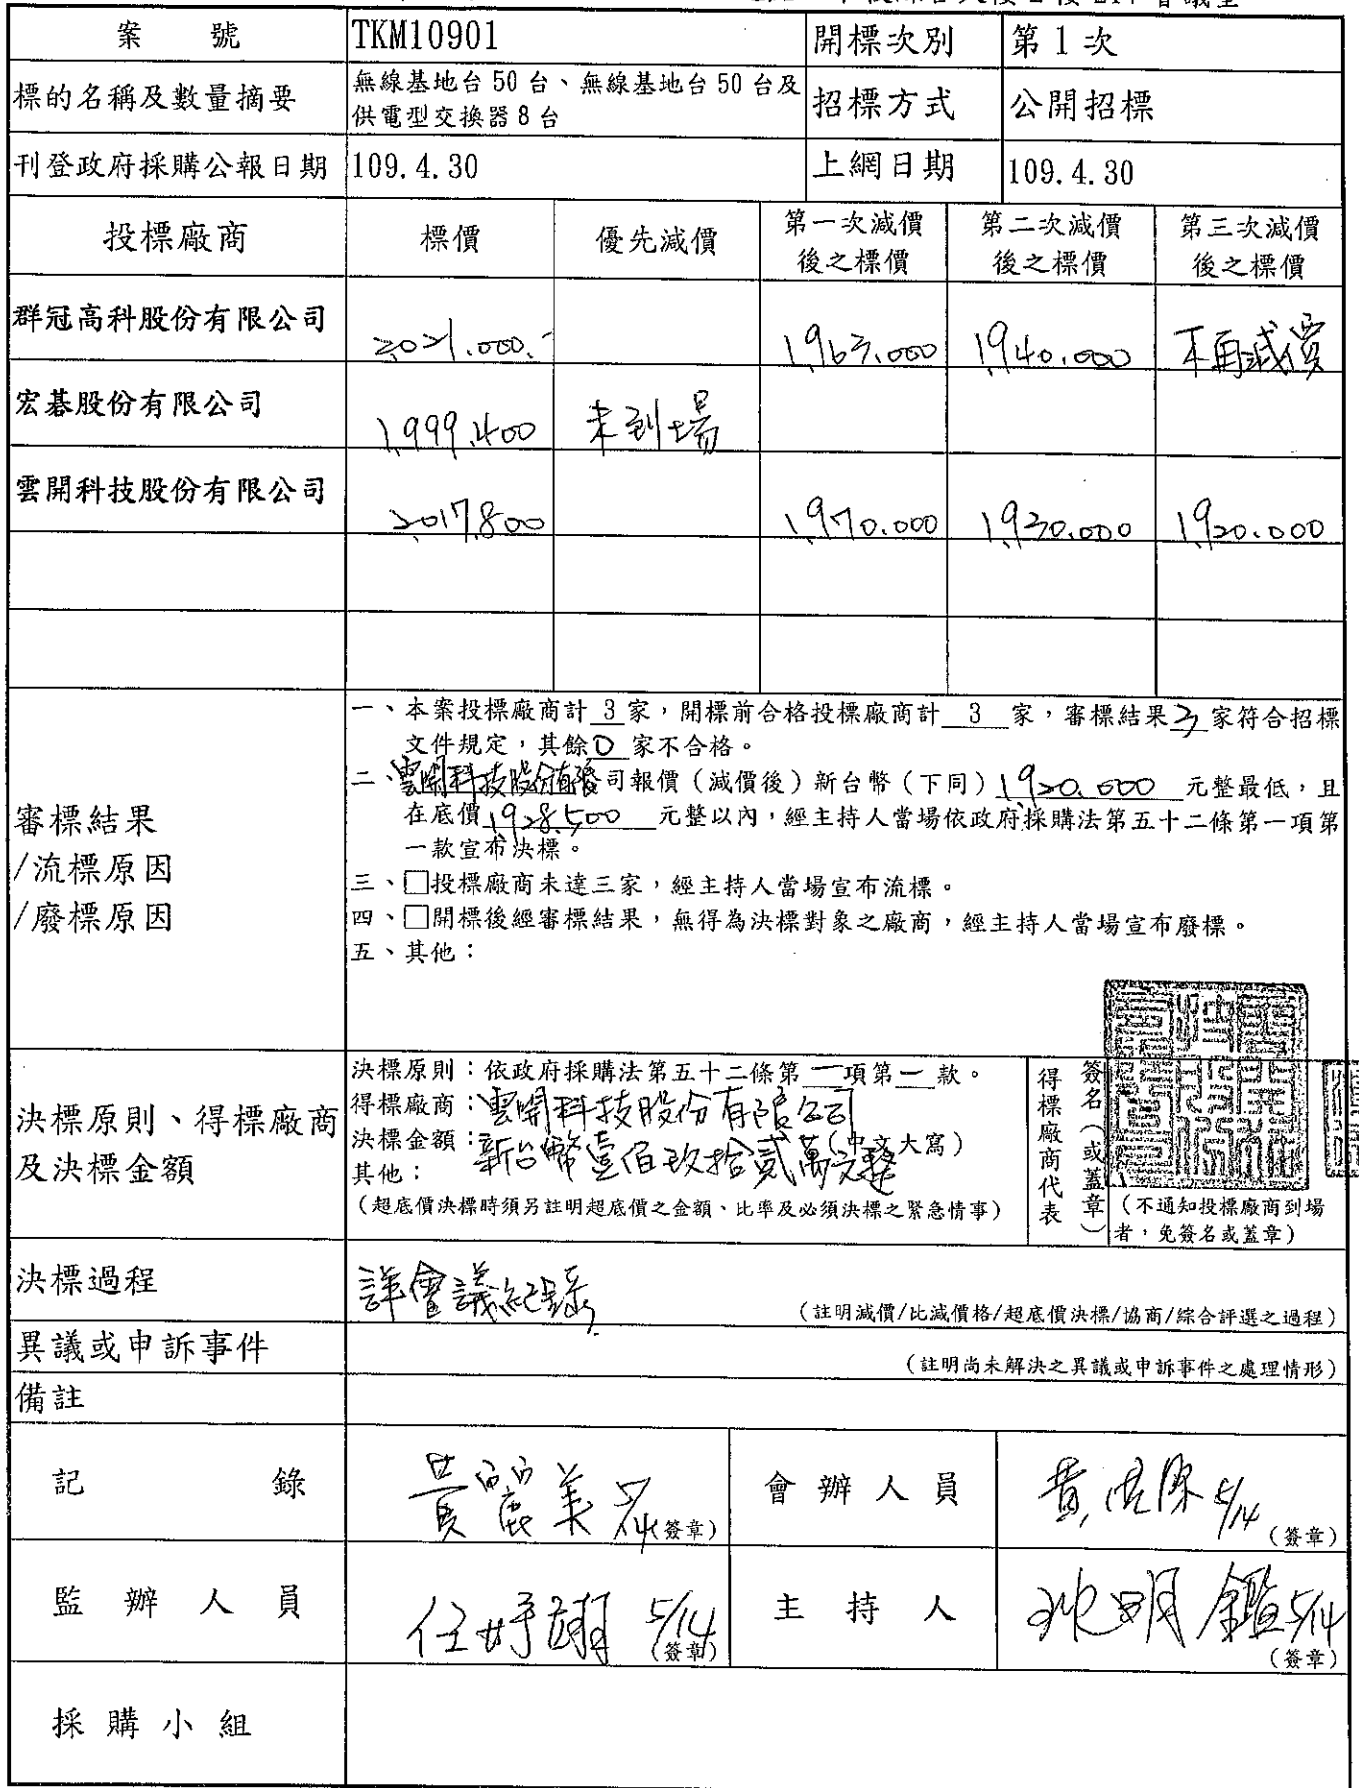 案 號 TKM10901 開標次別 第1次
標的名稱及數量摘要 無線基地台50台、無線基地台50台及
供電型交換器8台 招標方式 公開招標
刊登政府採購公報日期 109.4.30 上網日期 109.4.30
投標廠商 標價 優先減價 第一次減價
後之標價 第二次減價
後之標價 第三次減價
後之標價
群冠高科股份有限公司 2,021.000.- 1,963.000 1,940.000 不再減價
宏碁股份有限公司 1,999,400 未到場
雲開科技股份有限公司 2,017,800 1,970.000 1,930.000 1,920.000
審標結果
/流標原因
/廢標原因
一、本案投標廠商計 3 家,開標前合格投標廠商計 3 家,審標結果 3 家符合招標
文件規定,其餘 0 家不合格。
二、雲開科技股份有限公司報價(減價後)新台幣(下同)1,920,000 元整最低,且
在底價 1,928,500 元整以內,經主持人當場依政府採購法第五十二條第一項第
一款宣布決標。
三、□投標廠商未達三家,經主持人當場宣布流標。
四、□開標後經審標結果,無得為決標對象之廠商,經主持人當場宣布廢標。
五、其他:
決標原則、得標廠商
及決標金額
決標原則:依政府採購法第五十二條第一項第一款。
得標廠商:雲開科技股份有限公司
決標金額:新台幣壹佰玖拾貳萬元整(中文大寫)
其他:
(超底價決標時須另註明超底價之金額、比率及必須決標之緊急情事)
得標廠商代表
簽名(或蓋章)
(不通知投標廠商到場
者,免簽名或蓋章)
決標過程 詳會議紀錄
(註明減價/比減價格/超底價決標/協商/綜合評選之過程)
異議或申訴事件
(註明尚未解決之異議或申訴事件之處理情形)
備註
記 錄 黃麗美 5/14 (簽章) 會辦人員 5/14 (簽章)
監辦人員 5/14 (簽章) 主持人 沈明鑑 5/14 (簽章)
採購小組